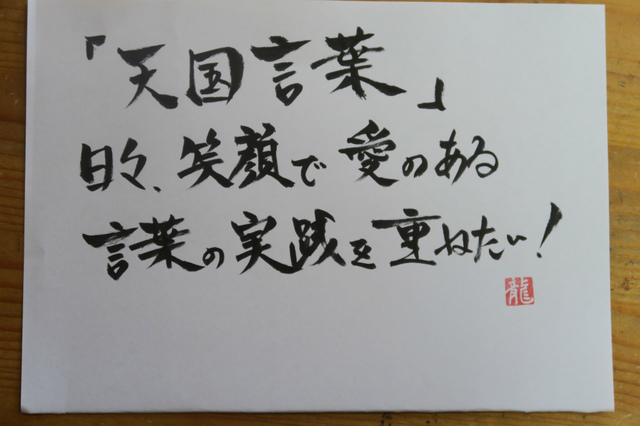 「天国言葉」
日々、笑顔で愛のある
言葉の実践を重ねたい!
龍